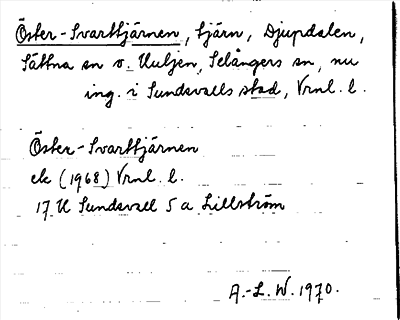 Öster-Svarttjärnen, tjärn, Djupdalen,
Sättna sn o. Huljen, Selångers sn, nu
ing. i Sundsvalls stad, Vrnl. l.
Öster-Svarttjärnen
ek (1968) Vrnl. l.
17 H Sundsvall 5 a Lillström
A.-L. W. 1970.